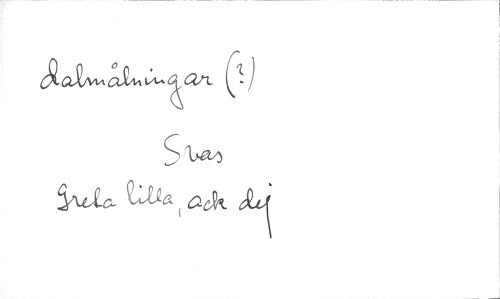 dalmålningar (?)
Svas
Greta lilla, ack dej